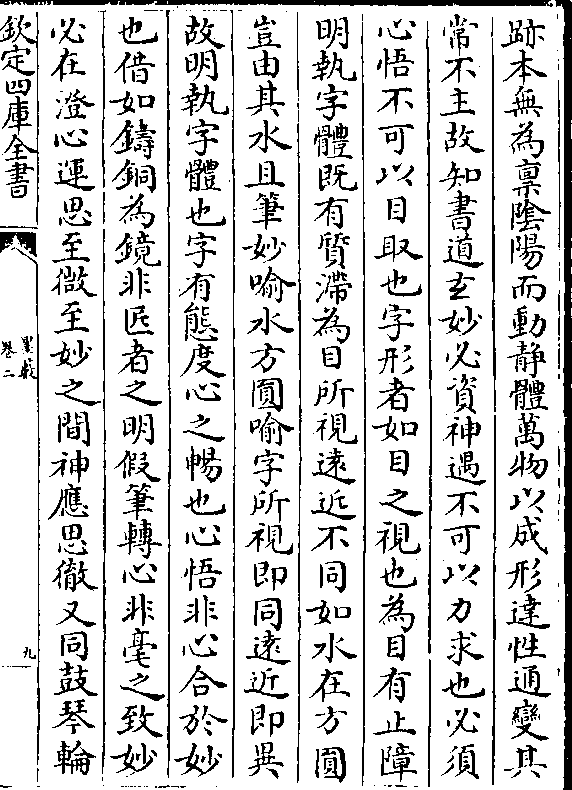 跡本無為稟陰陽而動靜體萬物以成形達性通變其
常不主故知書道𤣥妙必資神遇不可以力求也必須
心悟不可以目取也字形者如目之視也為目有止障
明執字體既有質滯為目所視遠近不同如水在方圓
豈由其水且筆妙喻水方圓喻字所視即同遠近即異
故明執字體也字有態度心之暢也心悟非心合於妙
也借如鑄銅為鏡非匠者之明假筆轉心非毫之致妙
必在澄心運思至微至妙之間神應思徹又同鼓琴輪
欽定四庫全書
墨藪
卷二
九